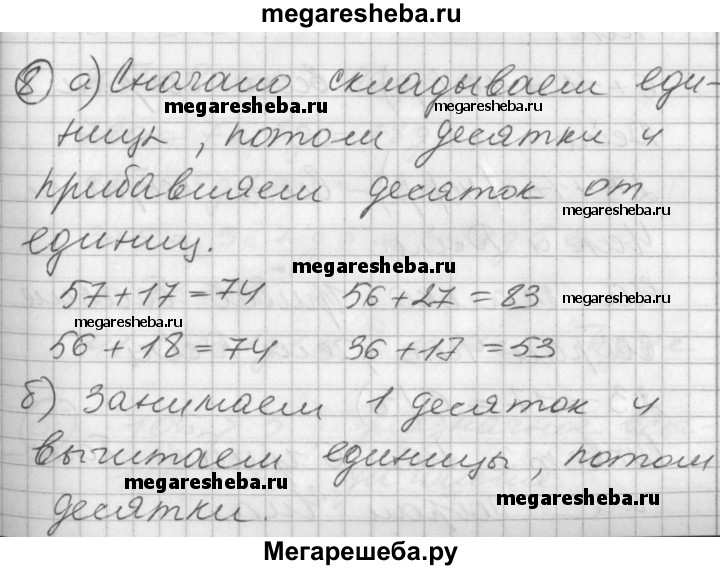 megaresheba.ru
8 а) Сначало складываем еди-
megaresheba.ru megaresheba.ru
ницы, потом десятки и
прибавляем десяток от
megaresheba.ru
единиц.
megaresheba.ru
57+17=74 56+27=83
megaresheba.ru
megaresheba.ru
56+18=74 36+17=53
б) Занимаем 1 десяток и
вычитаем единицы, потом
megaresheba.ru
megaresheba.ru
десятки.
Мегарешеба.ру